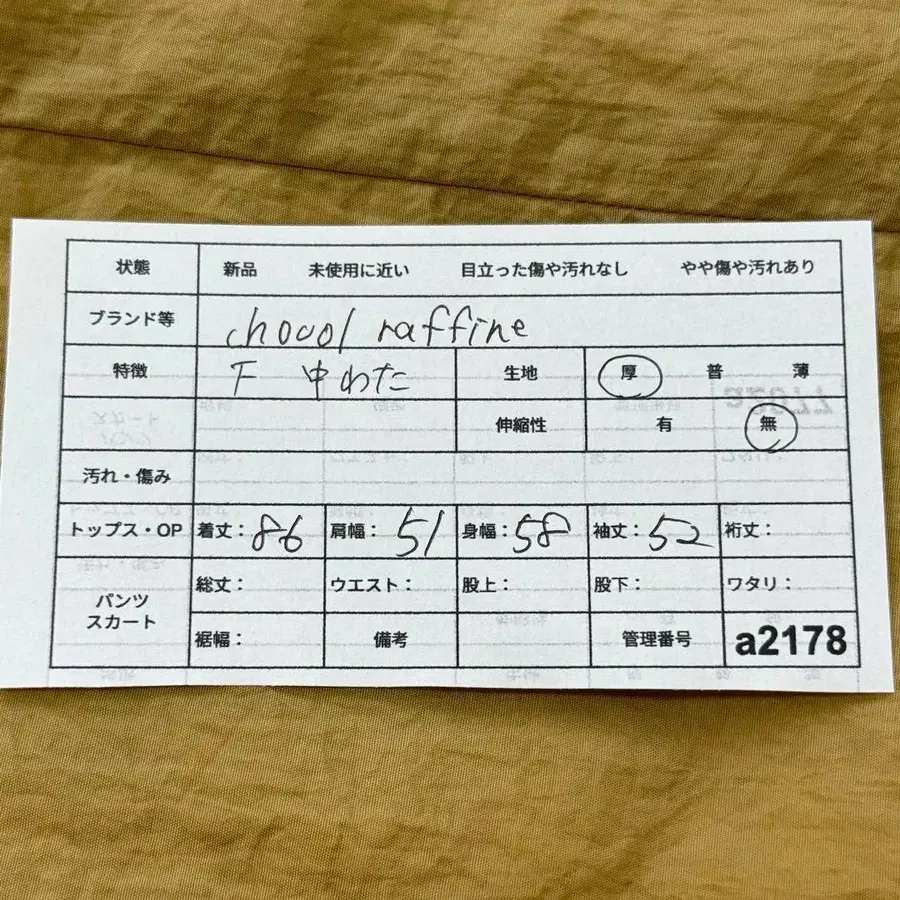 状態 新品 未使用に近い 目立った傷や汚れなし やや傷や汚れあり
ブランド等 chocol raffine
特徴 F 中わた 生地 厚 普 薄
伸縮性 有 無
汚れ・傷み
トップス・OP 着丈：86 肩幅：51 身幅：58 袖丈：52 裄丈：
パンツ スカート 総丈： ウエスト： 股上： 股下： ワタリ：
裾幅： 備考 管理番号 a2178